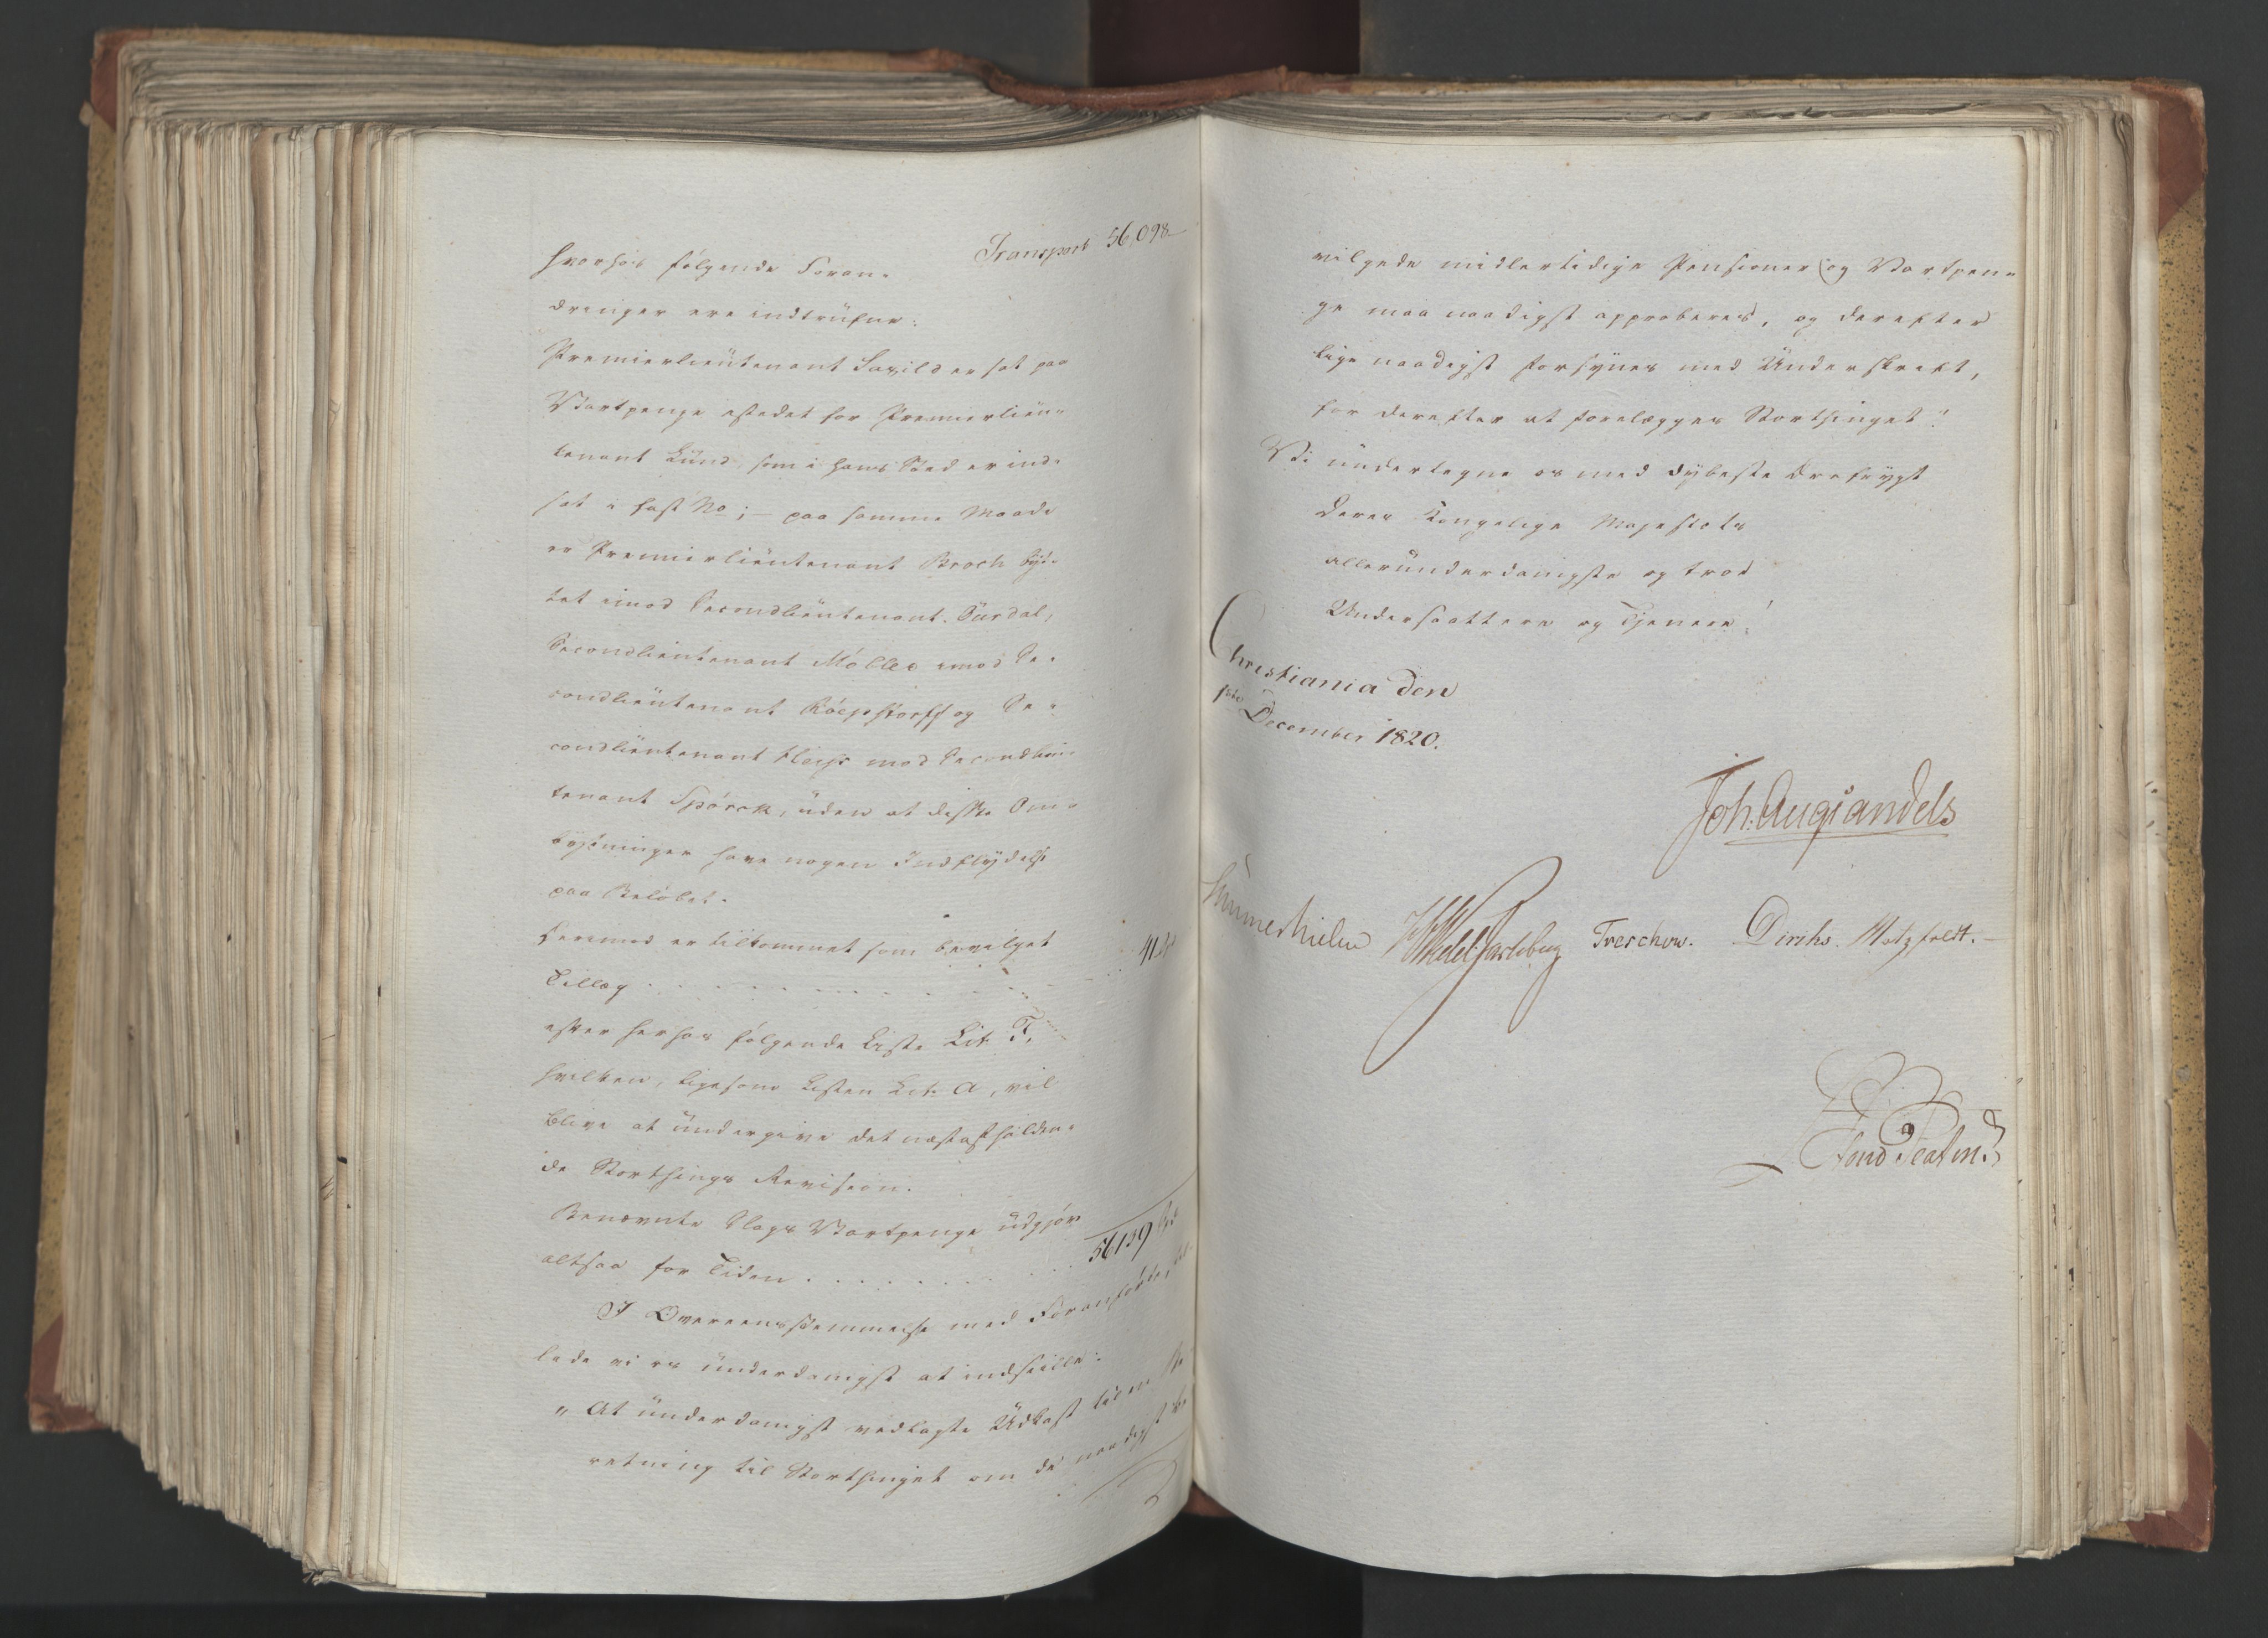 Transport 56,098
hvorhos følgende Foran-
dringer ere indtrufne:
Premierlieutenant Savild er sat paa
Vartpenge istedet for Premierlieu-
tenant Lund som i hans Sted er ind-
sat i fast No; – paa samme Maade
er Premierlieutenant Broch byt-
tet imod Secondlieutenant Øurdal,
Secondlieutenant Møller imod Se-
condlieutenant Røepstorff og Se-
condlieutenant imod Secondlieu-
tenant Spørck, uden at disse Om-
bytninger have nogen Indflydelse
paa Beløbet.
Herimod er tilkommet som bevilget
Tillæg . . . . . . . . . . 41
efter herhos følgende Liste Lit. F,
hvilken, ligesom Listen Lit. A, vil
blive at undergive det næst afholden-
de Storthings Revision.
Benævnte Slags Vartpenge udgjør
altsaa for Tiden . . . . . . . . . 56139
I Overeensstemmelse med Foranførte,
lade vi os underdanigst at indstille:
„At underdanigst vedlagte Udkast til en
retning til Storthinget om de naadigst be
vilgede midlertidige Pensioner og Vartpen-
ge maa naadigst approberes, og derefter
lige naadigst forsynes med Underskrift,
for derefter at forelægges Storthinget"
Vi undertegne os med dybeste Ærefrygt
Deres Kongelige Majestæts
allerunderdanigste og troe
Undersaattere og Tjenere,
Christiania den
December 1820.
Joh: Aug: Sandels
Hummerhielm HWedelJarlsberg Treschow. Diriks. Motzfeldt. –